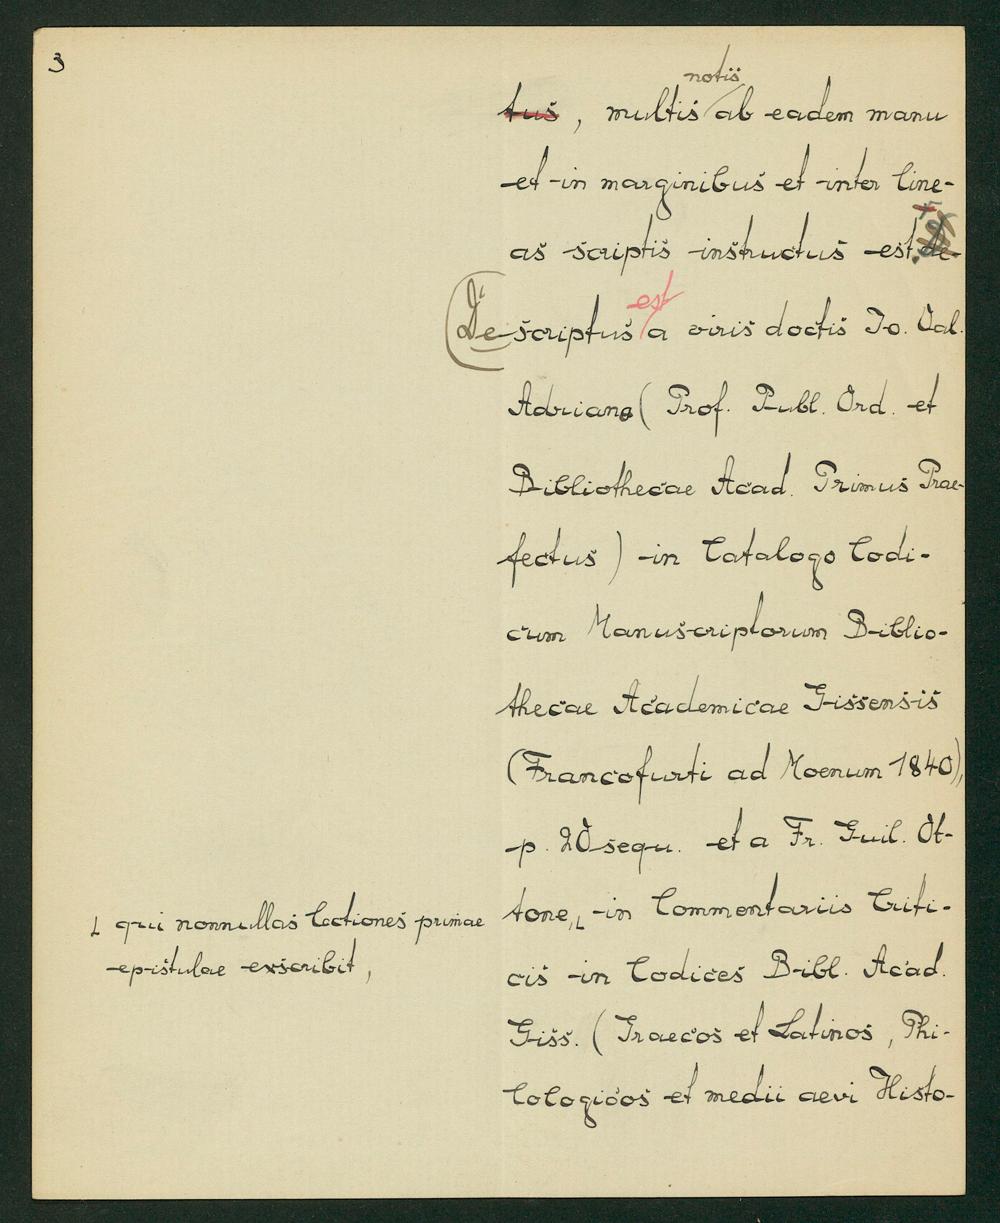 3
notis
tus, multis ab eadem manu
et in marginibus et inter line-
as scriptis instructus est. de-
Descriptus est a viris doctis Io. Val.
Adriano (Prof. Publ. Ord. et
Bibliothecae Acad. Primus Prae-
fectus) in Catalogo Codi-
cum Manuscriptorum Biblio-
thecae Academicae Gissensis
(Francofurti ad Moenum 1840),
p. 20 sequ. et a Fr. Guil. Ot-
tone, in Commentariis Criti-
cis in Codices Bibl. Acad.
Giss. (Graecos et Latinos, Phi-
lologicos et medii aevi Histo-
L qui nonnullas lectiones primae
epistulae exscribit,